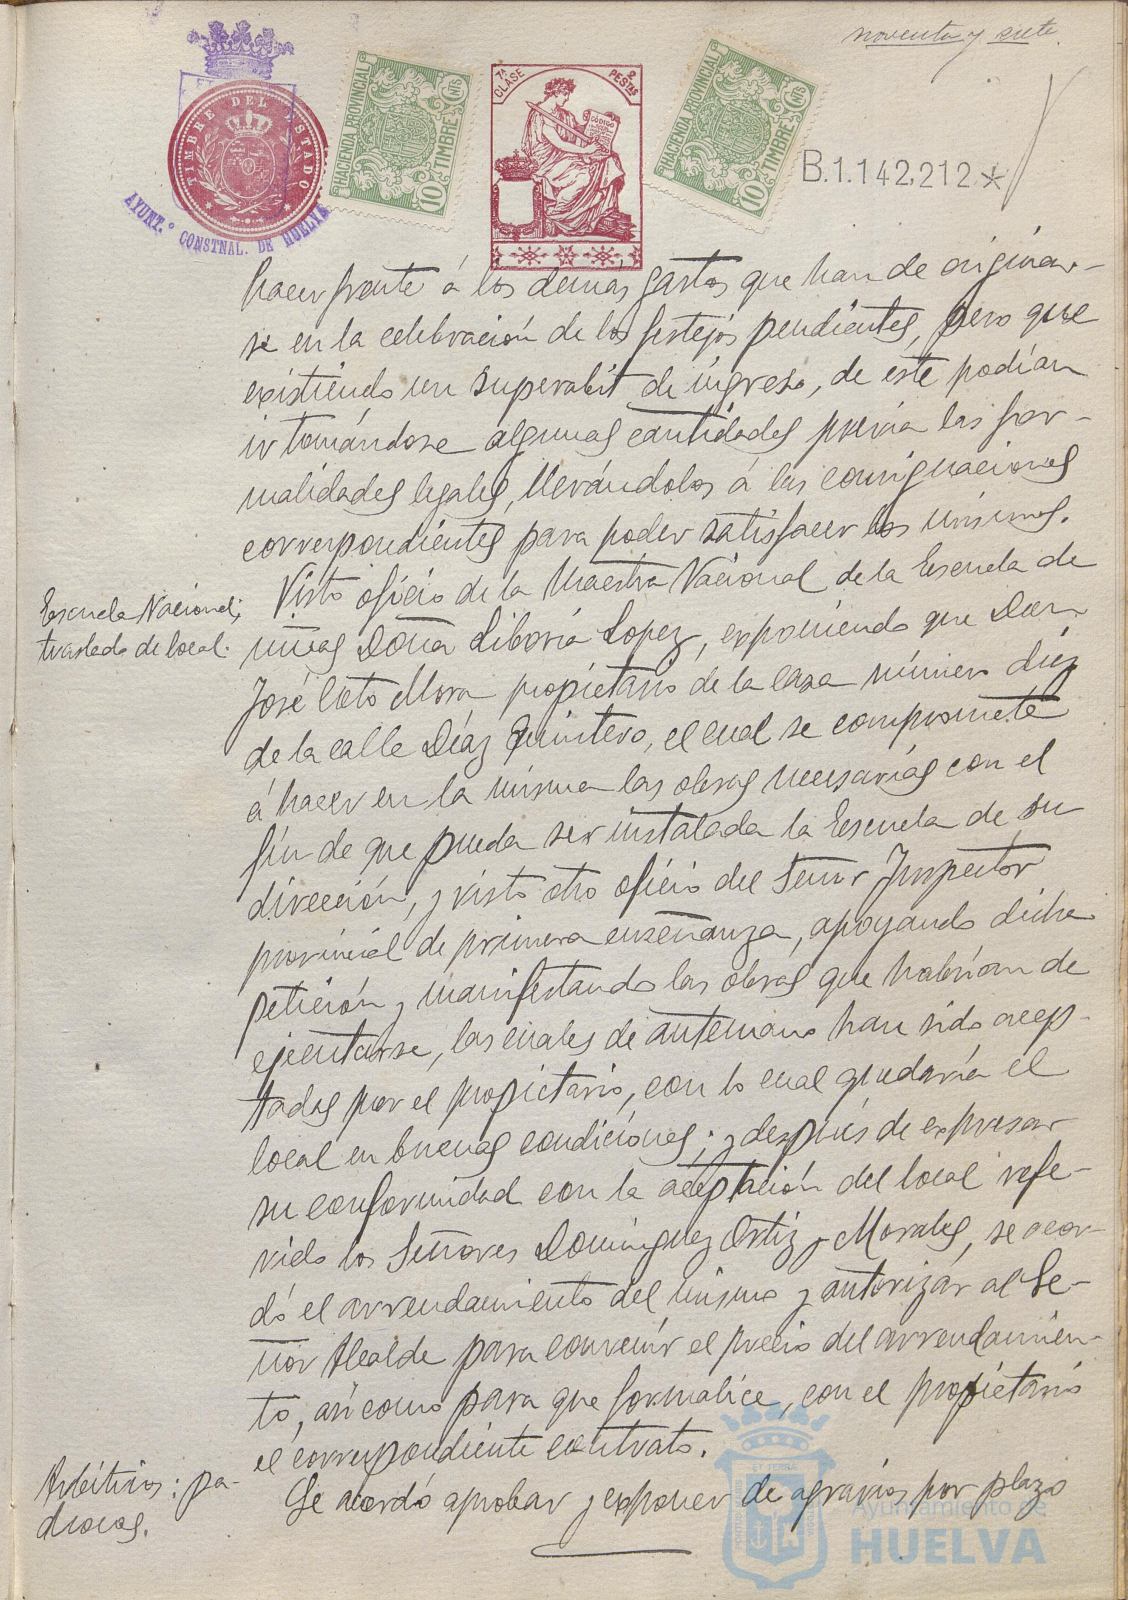 noventa y siete.
TIMBRE DEL ESTADO
AYUNT.º CONSTNAL. DE HUELVA
HACIENDA PROVINCIAL
10 TIMBRE CNTS
7ª CLASE
2 PESTAS
CÓDIGO
HACIENDA PROVINCIAL
10 TIMBRE CNTS
B.1.142,212*
hacer frente á los demás gastos que han de originar-
se en la celebración de los festejos pendientes, pero que
existiendo un superabit de ingreso, de este podían
ir tomándose algunas cantidades previa las for-
malidades legales, llevándolas á las consignaciones
correspondientes para poder satisfacer los mismos.
Escuela Nacional;
traslado de local.
Visto oficio de la Maestra Nacional de la Escuela de
niñas Doña Liboria Lopez, exponiendo que Don
José Coto Mora, propietario de la casa número diez
de la calle Díaz Quintero, el cual se compromete
á hacer en la misma las obras necesarias con el
fin de que pueda ser instalada la Escuela de su
dirección, y visto otro oficio del Señor Inspector
provincial de primera enseñanza, apoyando dicha
petición y manifestando las obras que habrían de
ejecutarse, las cuales de antemano han sido acep-
tadas por el propietario, con lo cual quedaría el
local en buenas condiciones; y después de expresar
su conformidad con la aceptación del local refe-
rido los Señores Domínguez Ortiz y Morales, se acor-
dó el arrendamiento del mismo y autorizar al Se-
ñor Alcalde para convenir el precio del arrendamien-
to, así como para que formalice, con el propietario
el correspondiente contrato.
Arbitrios: pa-
drones.
Se acordó aprobar y exponer de agravios por plazo
Ayuntamiento de
HUELVA